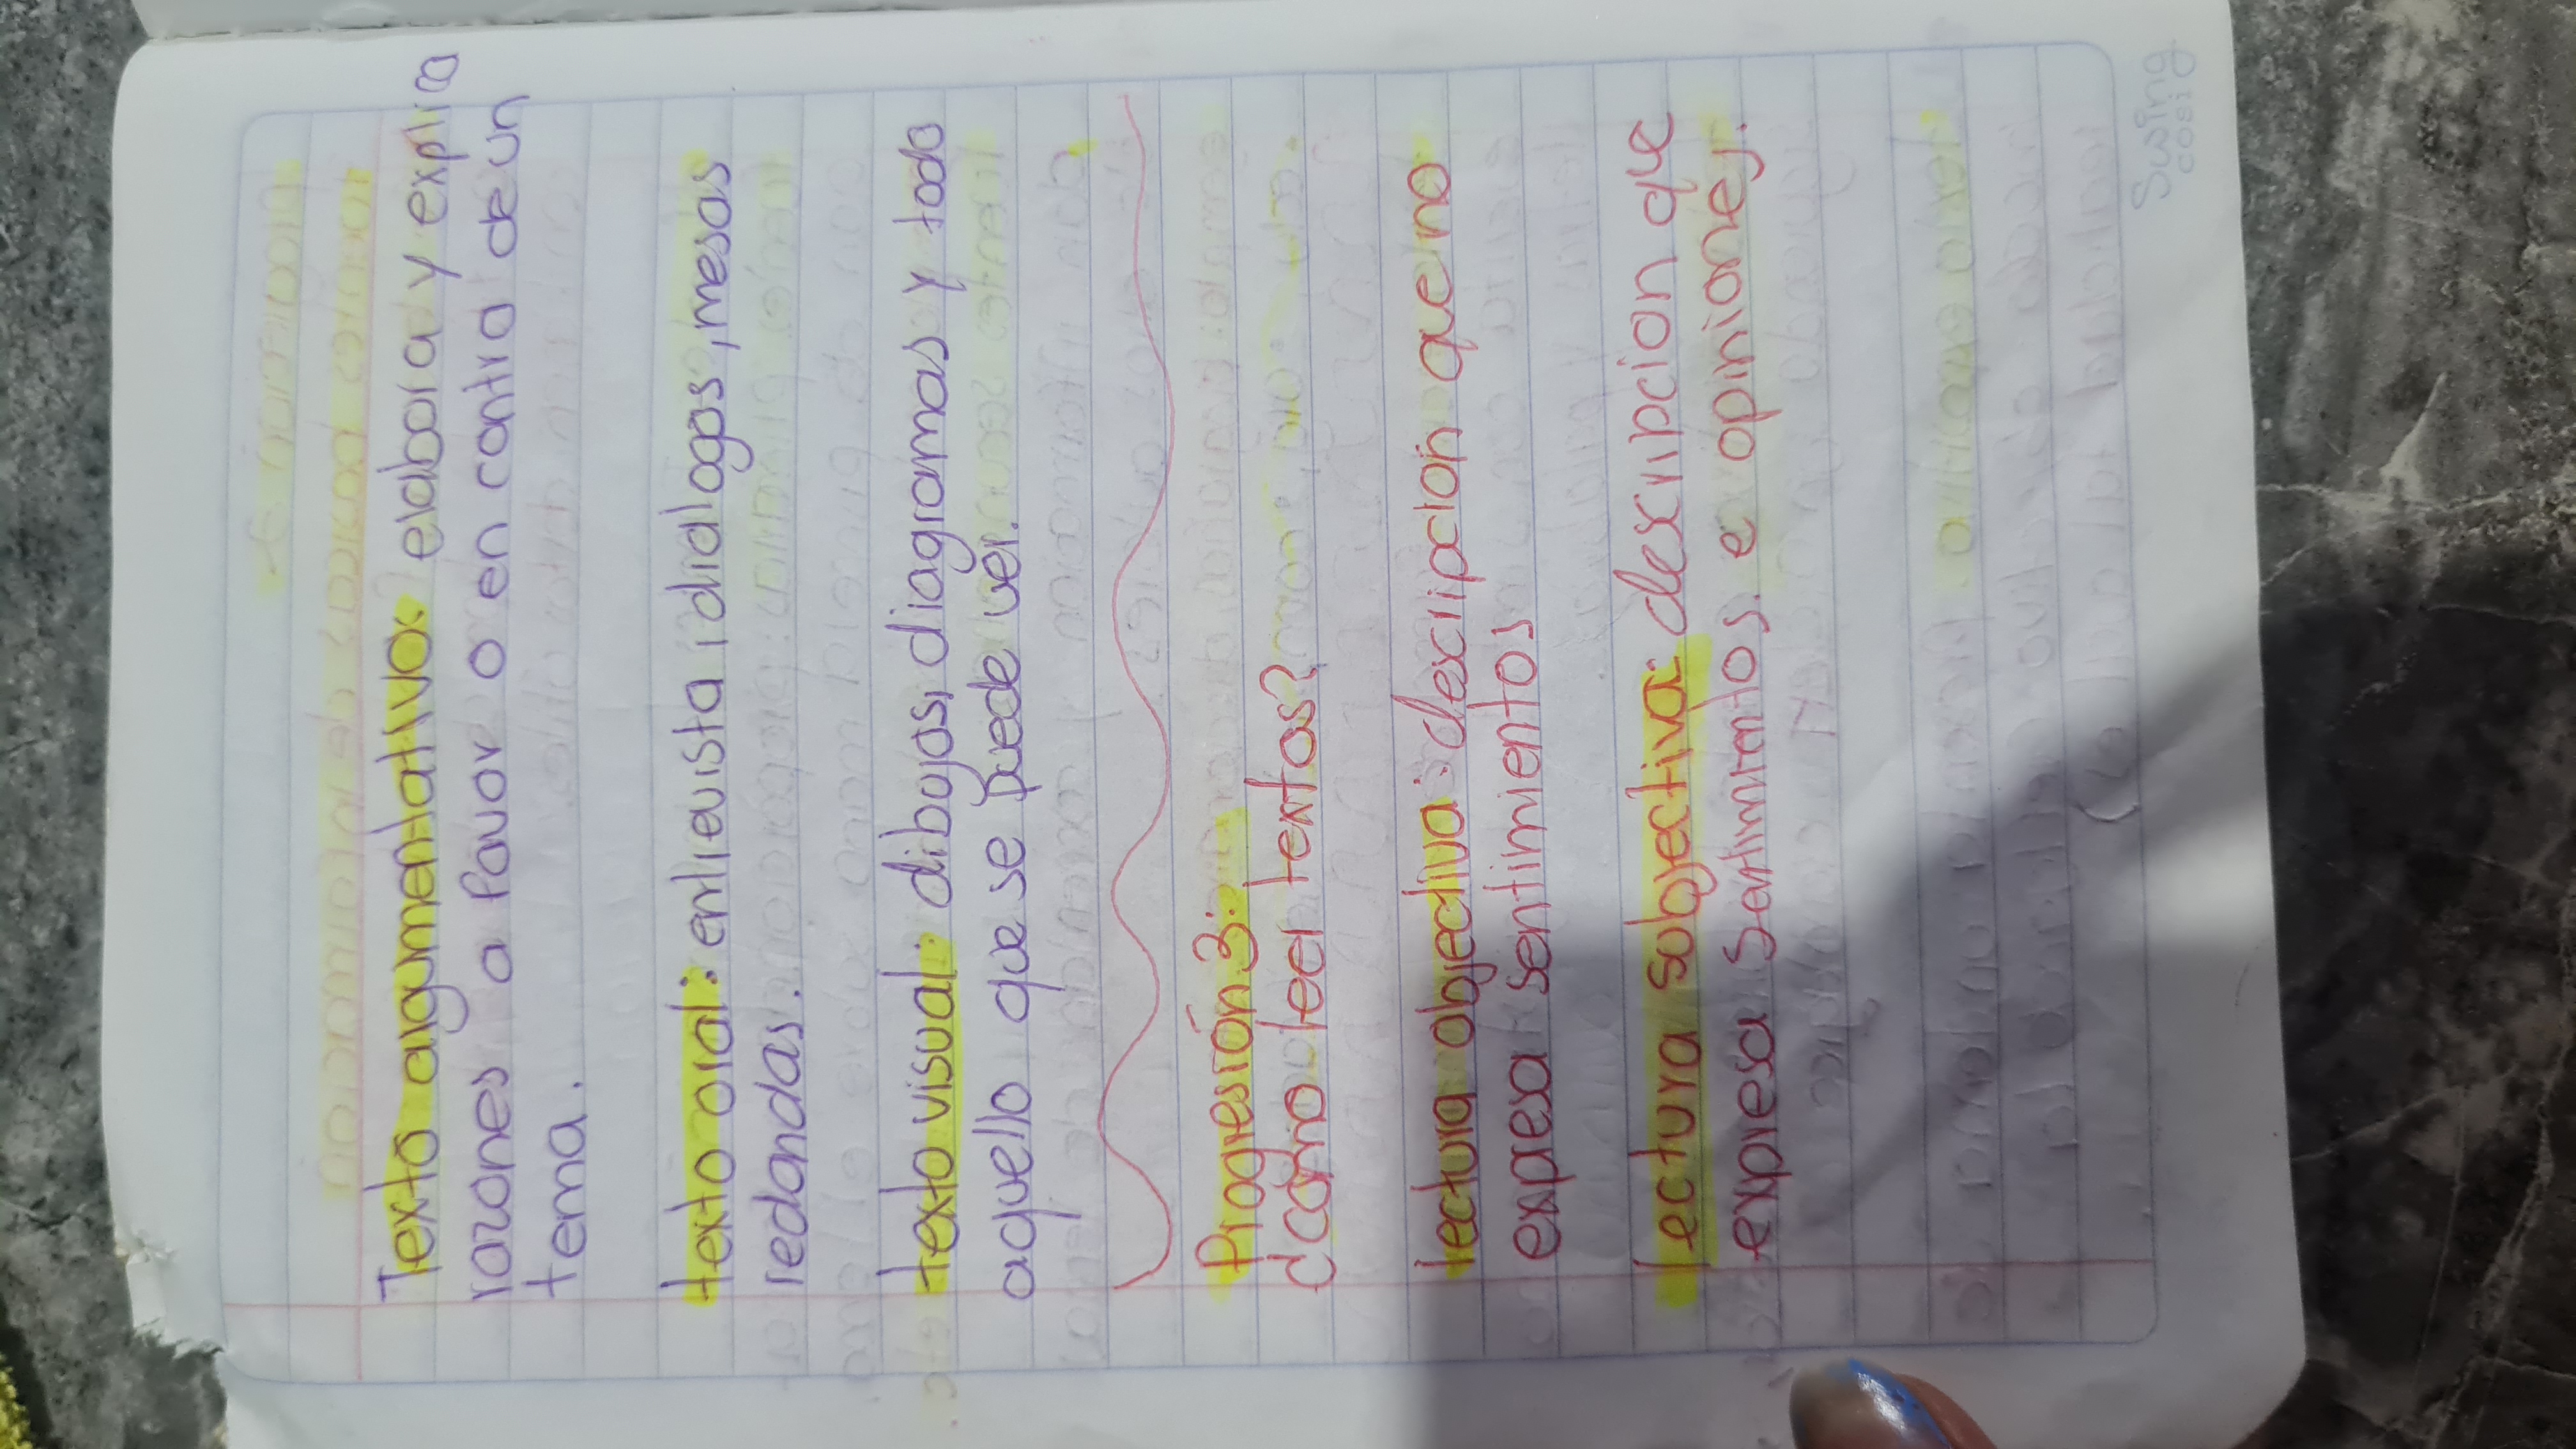 Texto argumentativo: elabora y explica
razones a favor o en contra de un
tema.
texto oral: entrevista, dialogos, mesas
redondas.
texto visual: dibujos, diagramas y todo
aquello que se puede ver.
Progresión 3:
¿como leer textos?
lectura objectiva: descripcion que no
expresa sentimientos
lectura subjectiva: descripcion que
expresa sentimientos. e opiniones.
Swing
cosi